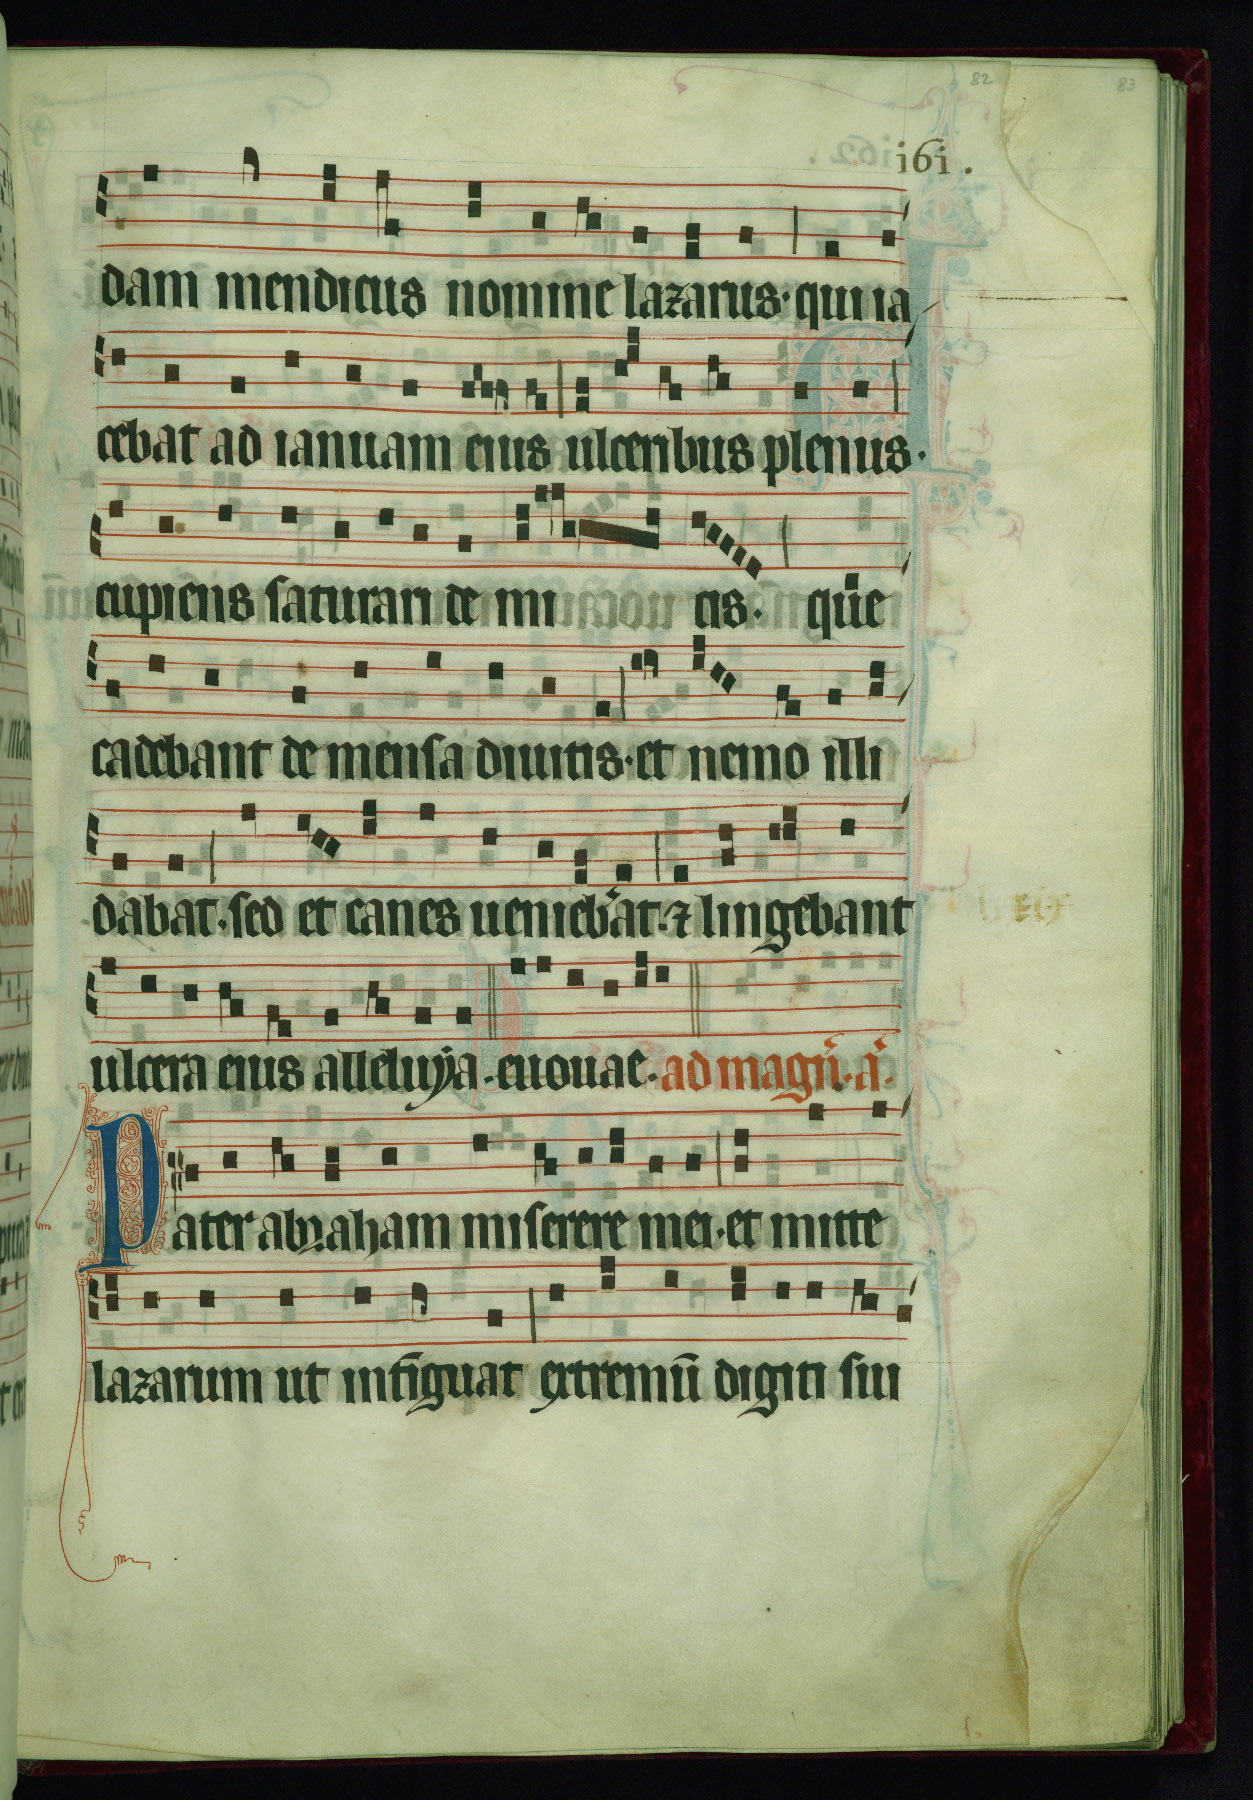 82
83
161.
dam mendicus nomine lazarus· qui ia
cebat ad ianuam eius ulceribus plenus·
cupiens saturari de mi cis· que
cadebant de mensa diuitis· et nemo illi
dabat· sed et canes uenieb̾at· ⁊ lingebant
ulcera eius alleluya· euouae· ad magn̾· a̾·
Pater abraham miserere mei· et mitte
lazarum ut intīguat extremū digiti sui